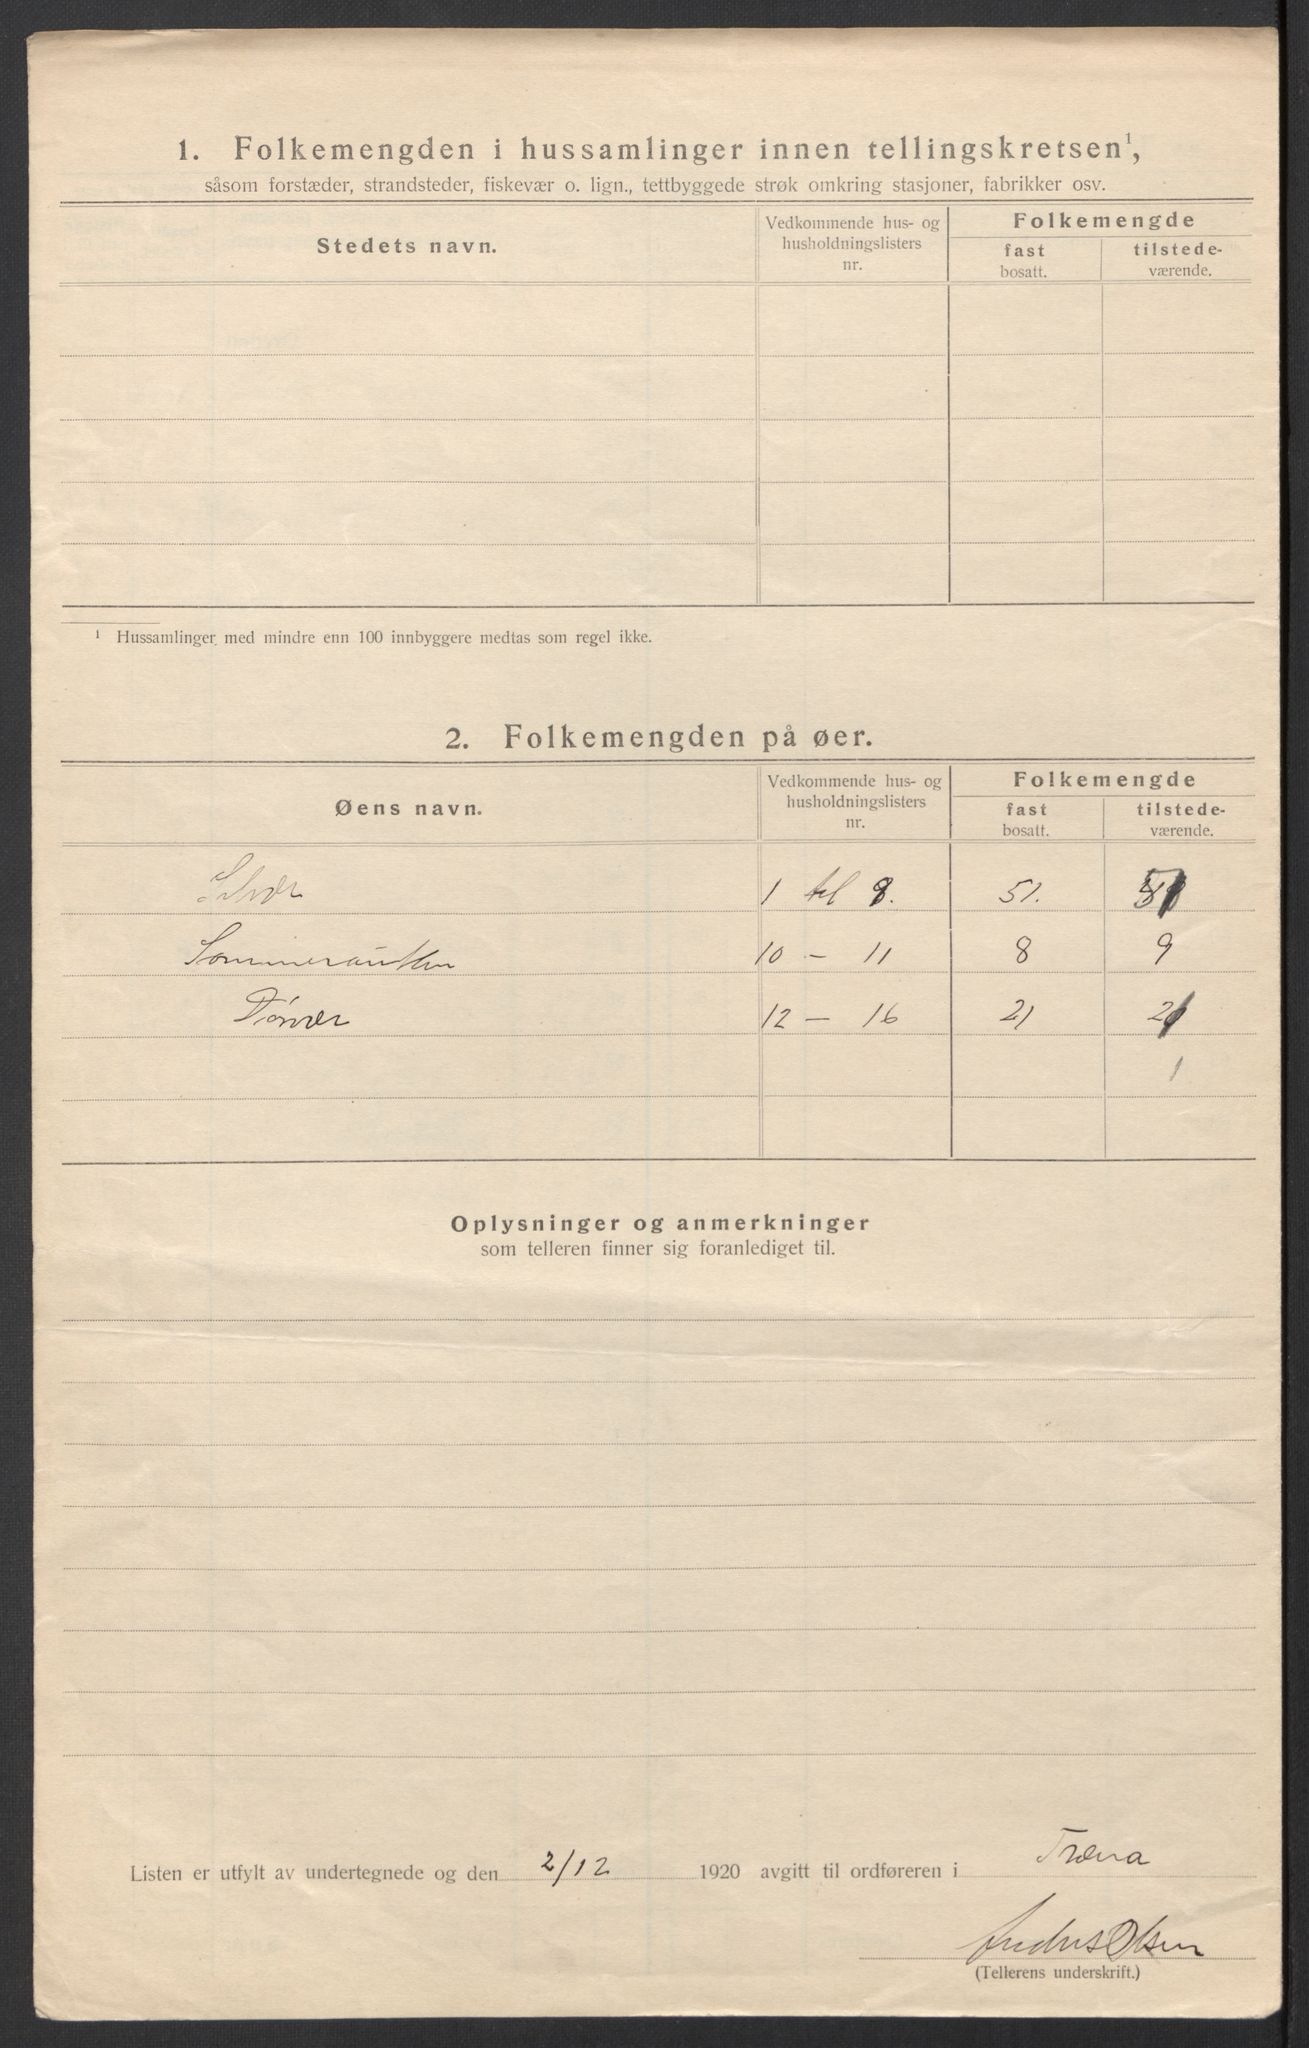 1. Folkemengden i hussamlinger innen tellingskretsen¹,
såsom forstæder, strandsteder, fiskevær o. lign., tettbyggede strøk omkring stasjoner, fabrikker osv.
Stedets navn. Vedkommende hus- og husholdningslisters nr. Folkemengde
fast bosatt. tilstede-værende.
¹ Hussamlinger med mindre enn 100 innbyggere medtas som regel ikke.
2. Folkemengden på øer.
Øens navn. Vedkommende hus- og husholdningslisters nr. Folkemengde
fast bosatt. tilstede-værende.
Selvær 1 til 9. 51.
10 – 11 8 9
12 – 16 21
1
Oplysninger og anmerkninger
som telleren finner sig foranlediget til.
Listen er utfylt av undertegnede og den 2/12 1920 avgitt til ordføreren i Træna
Olsen
(Tellerens underskrift.)